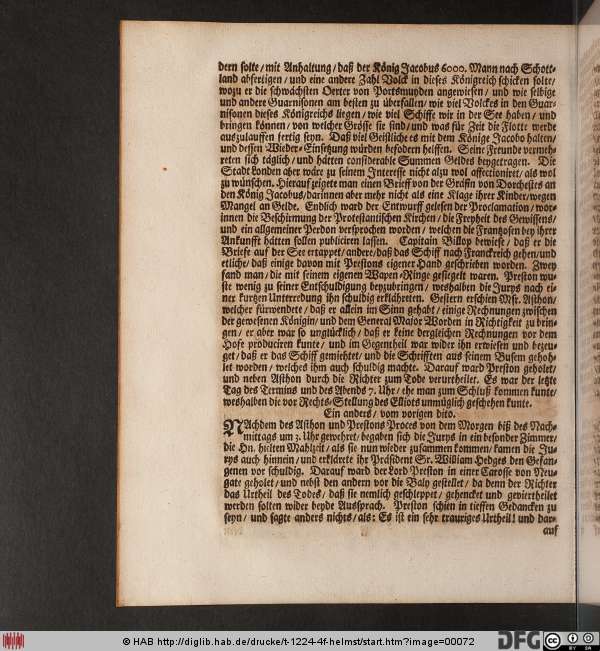 dern solte / mit Anhaltung / daß der König Jacobus 6000. Mann nach Schott-
land abfertigen / und eine andere Zahl Volck in dieses Königreich schicken solte /
wozu er die schwächsten Oerter von Portsmuyden angewiesen / und wie selbige
und andere Guarnisonen am besten zu überfallen / wie viel Volckes in den Guar-
nisonen dieses Königreichs liegen / wie viel Schiffe wir in der See haben / und
bringen können / von welcher Grösse sie sind / und was für Zeit die Flotte werde
auszulauffen fertig seyn. Daß viel Geistliche es mit dem Könige Jacobo halten /
und dessen Wieder-Einsetzung würden befodern helffen. Seine Freunde vermeh-
reten sich täglich / und hätten considerable Summen Geldes beygetragen. Die
Stadt Londen aber wäre zu seinem Interesse nicht alzu wol affectioniret / als wol
zu wünschen. Hierauf zeigete man einen Brieff von der Gräfin von Dorchester an
den König Jacobus / darinnen aber mehr nicht als eine Klage ihrer Kinder / wegen
Mangel an Gelde. Endlich ward der Entwurff gelesen der Proclamation / wor-
innen die Beschirmung der Protestantischen Kirchen / die Freyheit des Gewissens /
und ein allgemeiner Perdon versprochen worden / welchen die Frantzosen bey ihrer
Ankunfft hätten sollen publiciren lassen. Capitain Billop bewiese / daß er die
Briefe auf der See ertappet / andere / daß das Schiff nach Franckreich gehen / und
etliche / daß einige davon mit Prestons eigener Hand geschrieben worden. Zwey
fand man / die mit seinem eigenen Wapen-Ringe gesiegelt waren. Preston wu-
ste wenig zu seiner Entschuldigung beyzubringen / weshalben die Jurys nach ei-
ner kurtzen Unterredung ihn schuldig erklähreten. Gestern erschien Msr. Asthon /
welcher fürwendete / daß er allein im Sinn gehabt / einige Rechnungen zwischen
der gewesenen Königin / und dem General Major Worden in Richtigkeit zu brin-
gen / er aber war so unglücklich / daß er keine dergleichen Rechnungen vor dem
Hofe produciren kunte / und im Gegentheil war wider ihn erwiesen und bezeu-
get / daß er das Schiff gemiehtet / und die Schrifften aus seinem Busem geholt-
let worden / welches ihm auch schuldig machte. Darauf ward Preston geholet /
und neben Asthon durch die Richter zum Tode verurtheilet. Es war der letzte
Tag des Termins und des Abends 7. Uhr / ehe man zum Schluß kommen kunte /
weshalben die vor Rechts-Stellung des Elliots unmüglich geschehen kunte.
Ein anders / vom vorigen dito.
NAchdem des Asthon und Prestons Proces von dem Morgen biß des Nach-
mittags um 3. Uhr gewehret / begaben sich die Jurys in ein besonder Zimmer /
die Hn. hielten Mahlzeit / als sie nun wieder zusammen kommen / kamen die Ju-
rys auch hinnein / und erklärete ihr Präsident Sr. William Hedges den Gefan-
genen vor schuldig. Darauf ward der Lord Preston in einer Carosse von Neu-
gate geholet / und nebst den andern vor die Baly gestellet / da denn der Richter
das Urtheil des Todes / daß sie nemlich geschleppet / gehencket und geviertheilet
werden solten wider beyde Aussprach. Preston schien in tieffen Gedancken zu
seyn / und sagte anders nichts / als: Es ist ein sehr trauriges Urtheil! und dar-
auf
© HAB http://diglib.hab.de/drucke/t-1224-4f-helmst/start.htm?image=00072
DFG
cc BY SA